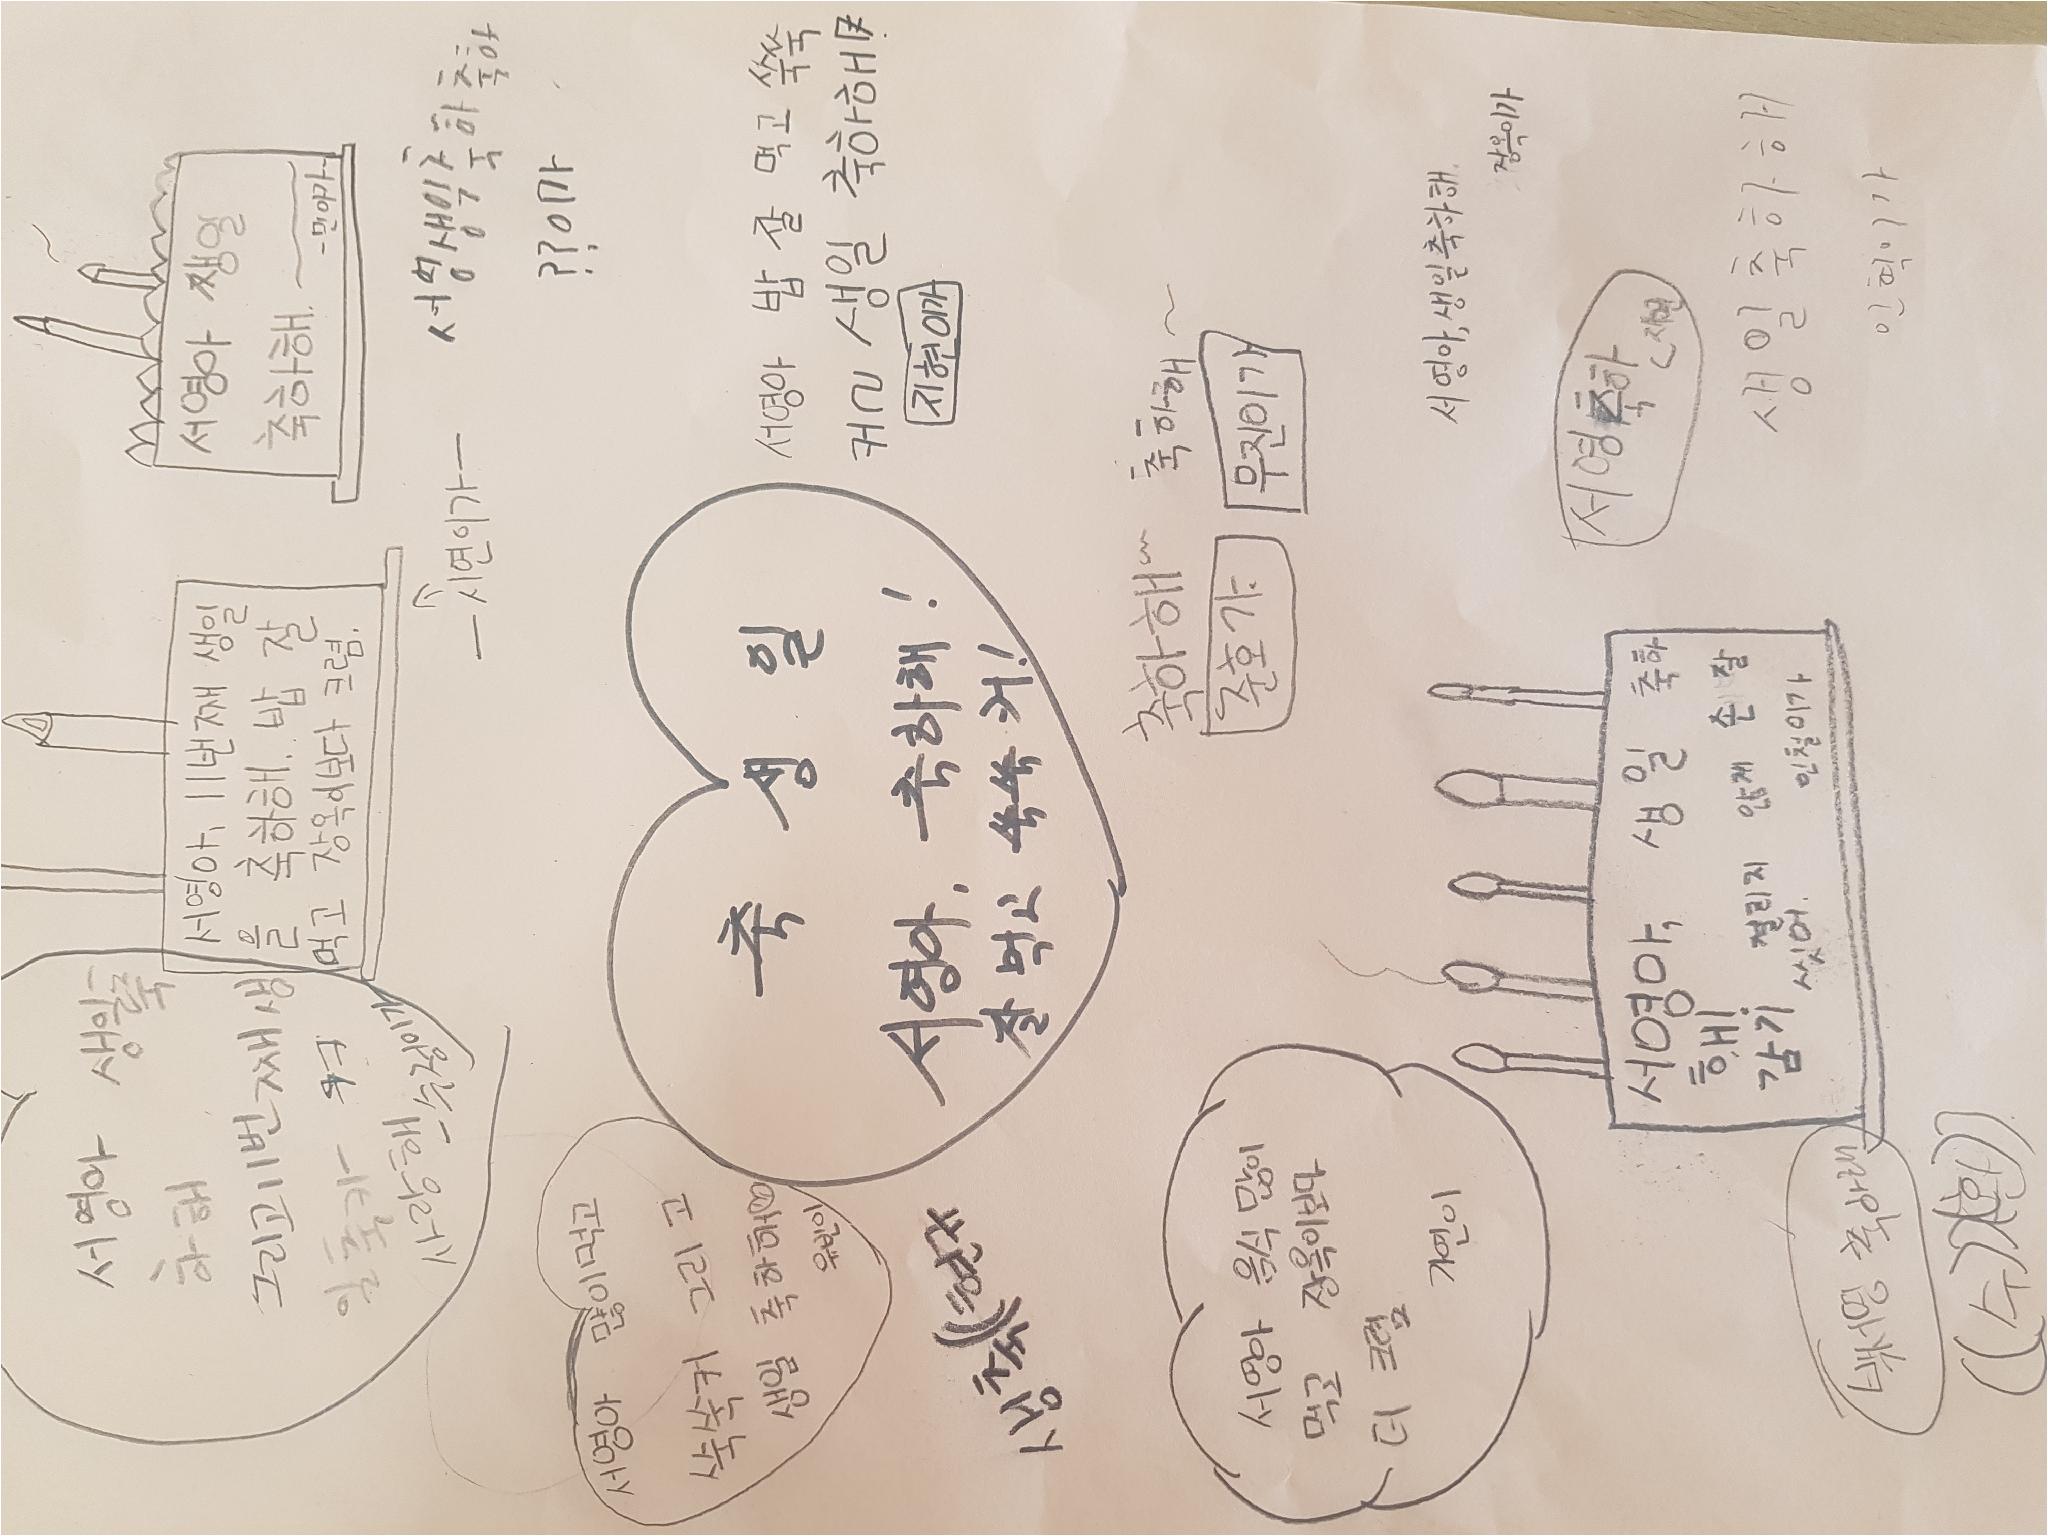 서영아 생일축
하해
그리고 11번째 생
일 축카
사랑해
서영아, 11번째 생일
을 축하해. 밥 잘
먹고 장옥이보다 크렴.
-시연이가-
서영아 생일
축하해.
-민아가-
서영 생일 축하 축하
??이가
서영아 많이먹고
쑥쑥커 그리고
생일 축하해
유빈이
축 생 일
서영아, 축하해!
잘 먹고 쑥쑥 커!
서영아 밥 잘 먹고 쑥쑥
커고 생일 축하해
지현이가
생축
축하해
준호가
축하해~
무진이가
서영아 음식 많이
먹고 장옥이보다
더 크렴
가연이
서영아, 생일축하해.
장옥이가
서영 축하
생일축하해
인혁이가
서영아, 생일 축하
해!
감기 걸리지 않게 손 잘
씻어.
인철이가
서영 축하해